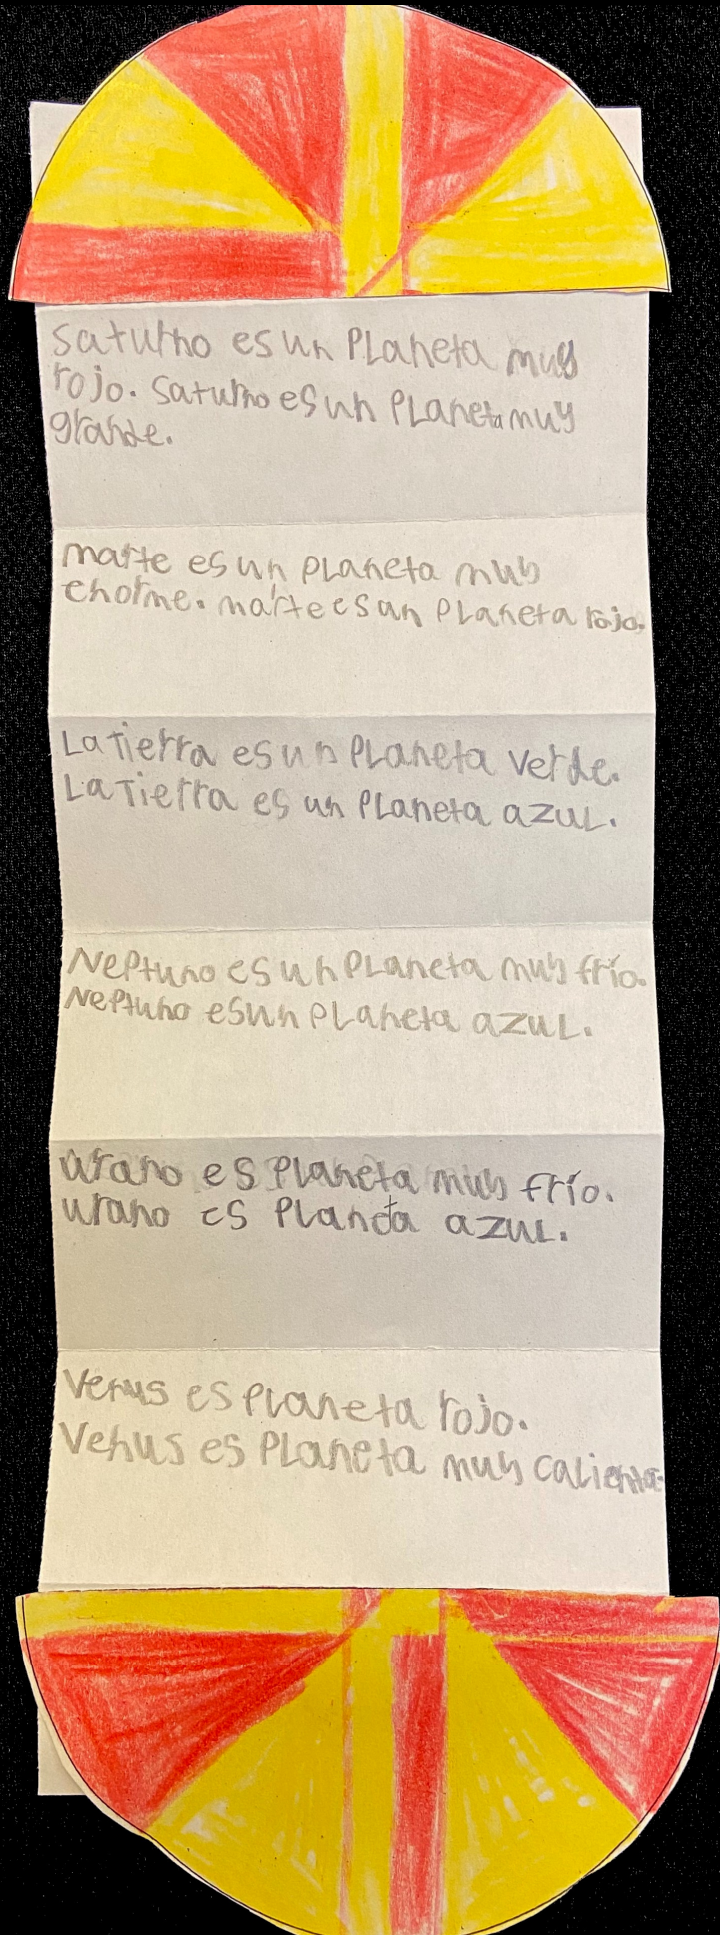 Saturno es un PLaneta muy
rojo. Saturno es un PLaneta muy
grande.
marte es un PLaneta muy
enorme. marte es un PLaneta rojo.
La Tierra es un PLaneta verde.
La Tierra es un PLaneta azuL.
Neptuno es un PLaneta muy frío.
Neptuno es un PLaneta azuL.
urano es PLaneta muy frío.
urano es PLaneta azuL.
Venus es PLaneta rojo.
Venus es PLaneta muy caLiente.